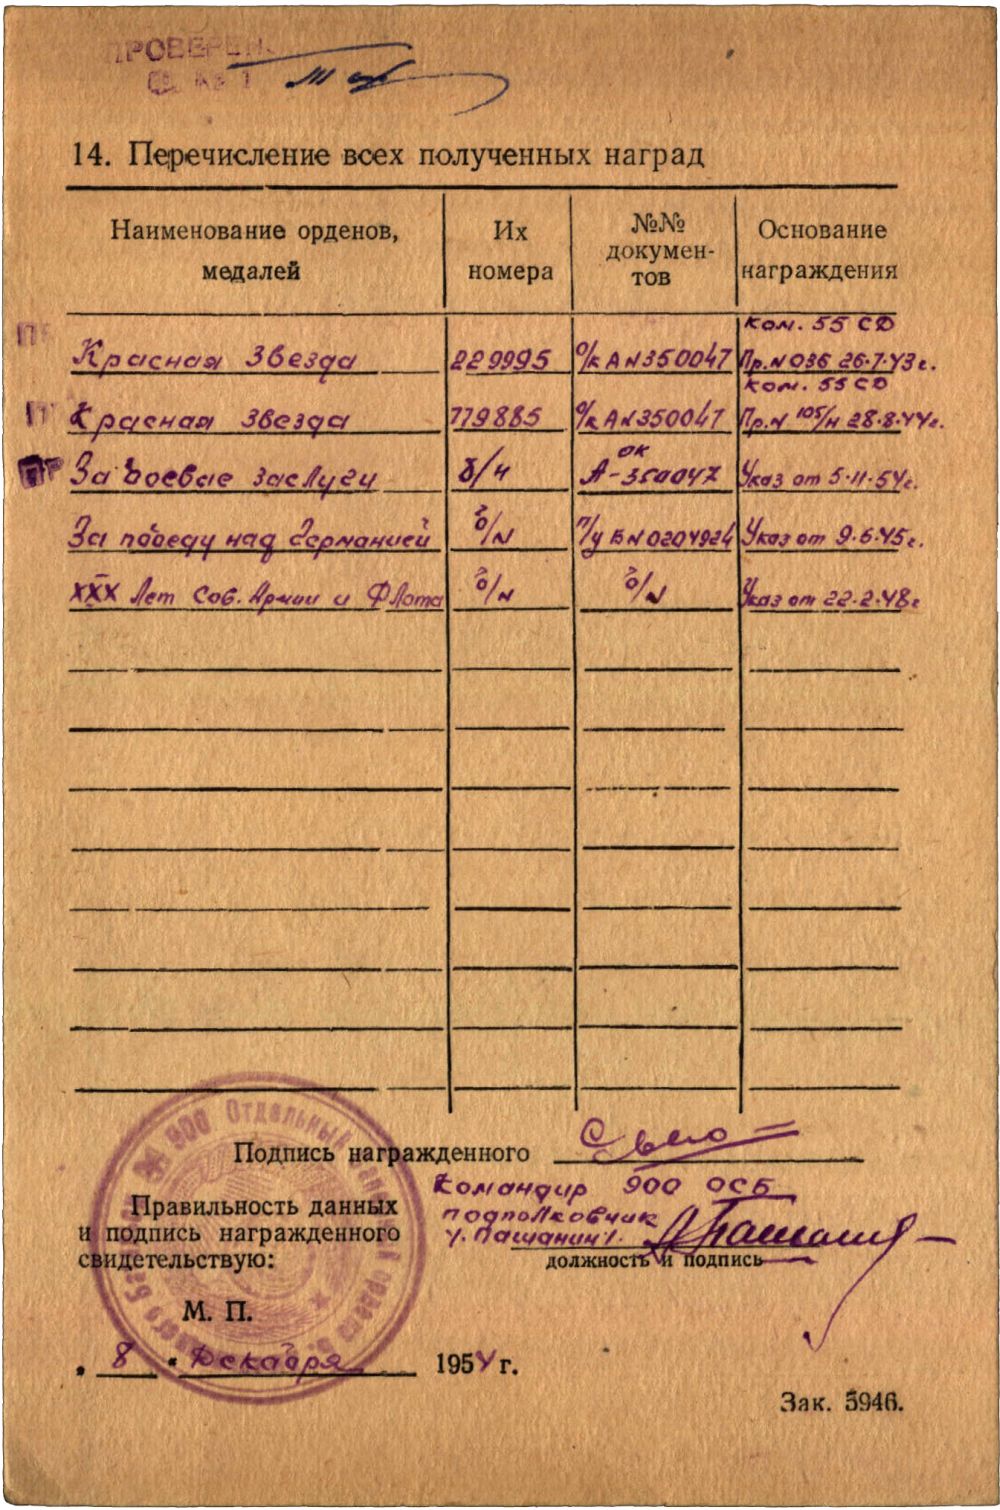 ПРОВЕРЕНО
14. Перечисление всех полученных наград
Наименование орденов, медалей
Их номера
№№ документов
Основание награждения
Красная Звезда 229995 о/к А N 350047 Ком. 55 СД Пр. N 036 26.7.43г.
Красная Звезда 779885 о/к А N 350047 Ком. 55 СД Пр. N 105/н 28.8.44г.
За боевые заслуги б/н ок А-350047 Указ от 5.11.54г.
За победу над Германией б/N п/у В N 0204924 Указ от 9.5.45г.
XXX Лет Сов. Армии и Флота б/N б/N Указ от 22.2.48г
Подпись награжденного
Правильность данных
и подпись награжденного
свидетельствую:
Командир 900 ОСБ
подполковник
должность и подпись
М. П.
900 Отдельный
„ 8 " Декабря 1954 г.
Зак. 5946.